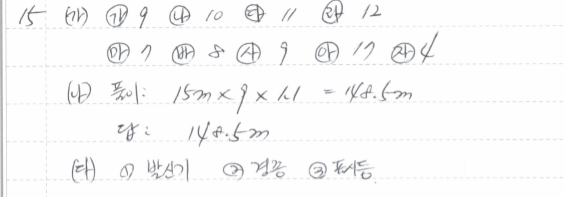 15 (가) ㉮ 9 ㉯ 10 ㉰ 11 ㉱ 12
㉴ 7 ㉳ 8 ㉴ 9 ㉵ 17 ㉶ 4
(나) 풀이: 15m × 9 × 1.1 = 148.5m
답: 148.5m
(다) ① 발신기 ② 경종 ③ 표시등